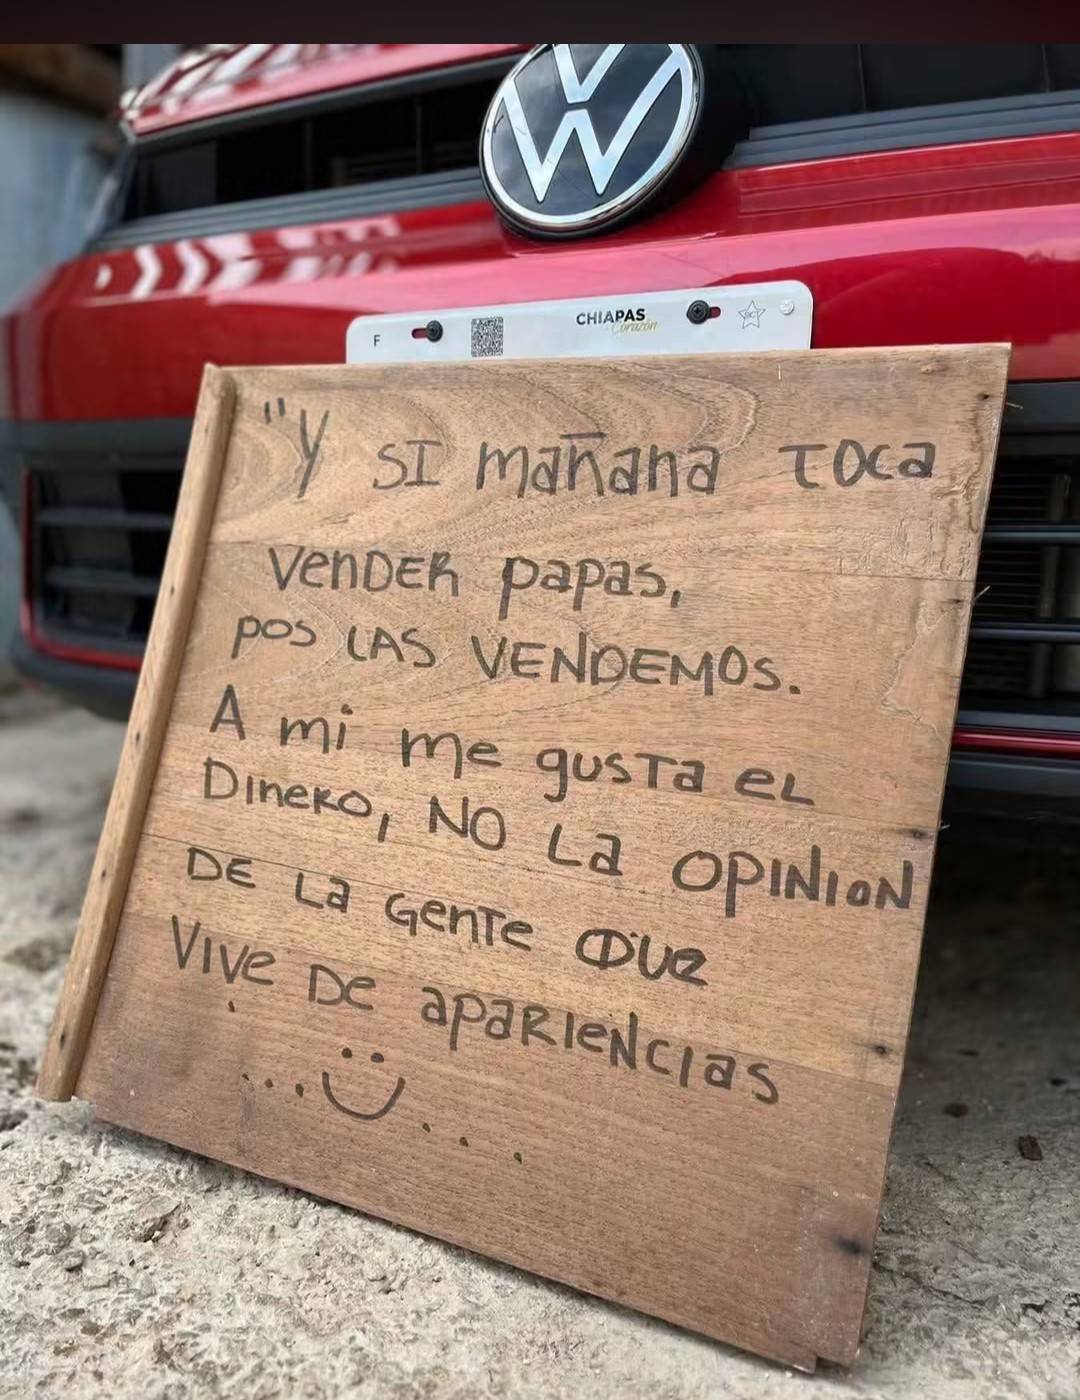 VW
F
CHIAPAS
Corazón
"Y SI mañana TOCa
VenDER papas,
pos LAS VENDEMOS.
A mi me gusTa eL
DineRO, NO La OPINIoN
DE La GenTe QUe
ViVe De apaRIeNcias